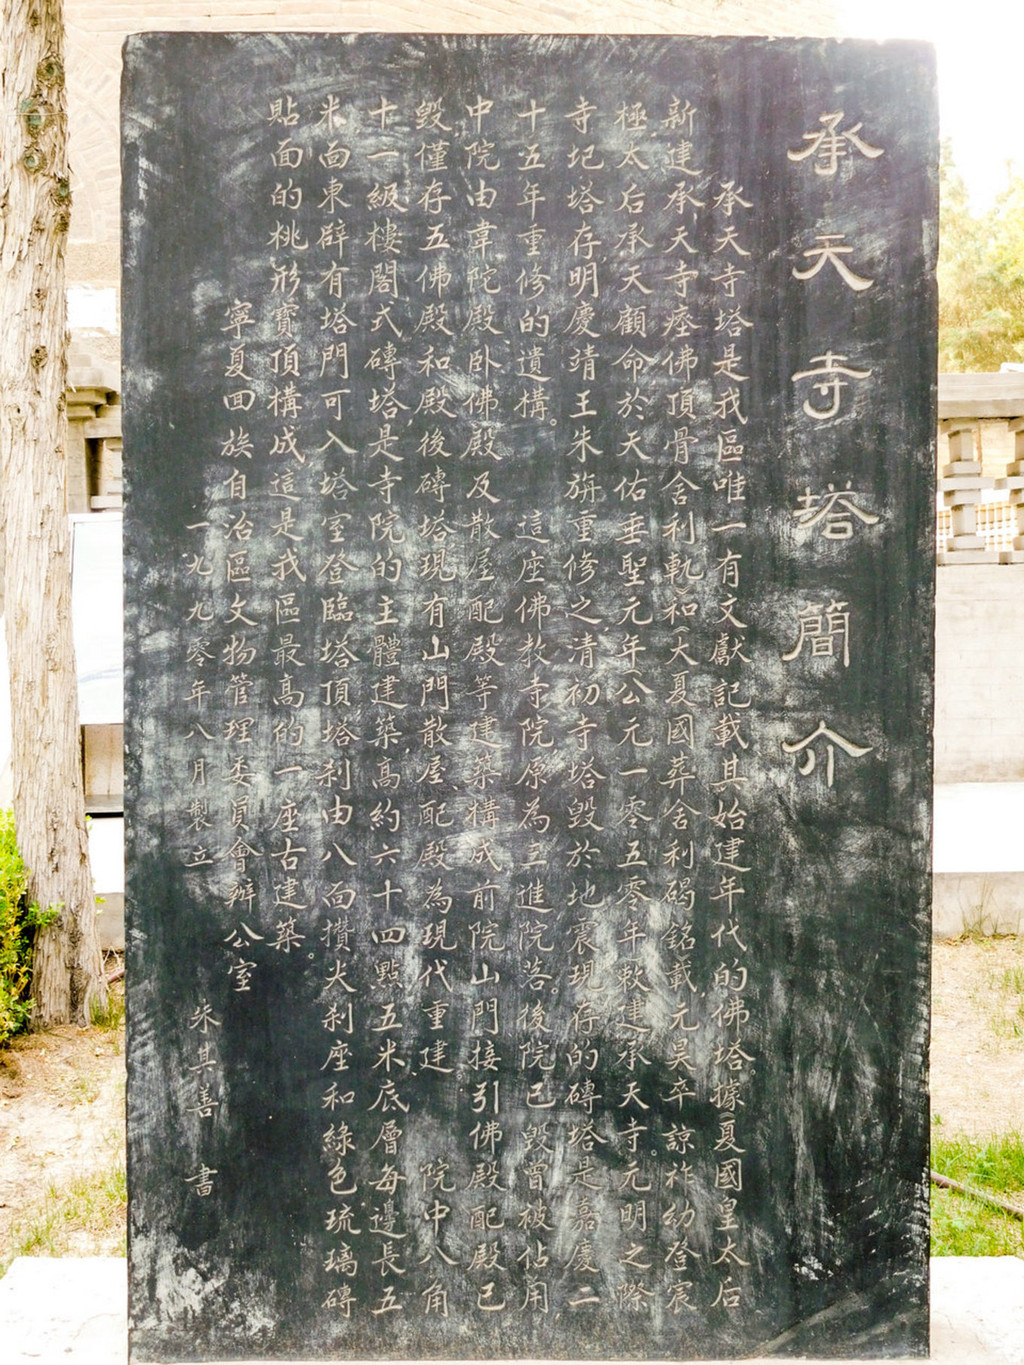 承天寺塔簡介
承天寺塔是我區唯一有文獻記載其始建年代的佛塔。據《夏國皇太后
新建承天寺瘞佛頂骨舍利軌》和《大夏國葬舍利碣銘》載元昊卒諒祚幼登宸
極太后承天顧命於天佑垂聖元年公元一零五零年敕建承天寺。元明之際
寺圮塔存，明慶靖王朱㫋重修之清初寺塔毀於地震現存的磚塔是嘉慶二
十五年重修的遺構。 這座佛教寺院原為三進院落。後院已毀曾被佔用
中院由韋陀殿、卧佛殿及散屋配殿等建築構成前院山門接引佛殿配殿已
毀僅存五佛殿和殿後磚塔現有山門散屋、配殿為現代重建 院中八角
十一級樓閣式磚塔，是寺院的主體建築，高約六十四點五米底層每邊長五
米面東辟有塔門可入塔室登臨塔頂塔刹由八面攢尖刹座和綠色琉璃磚
貼面的桃形寶頂構成，這是我區最高的一座古建築。
寧夏回族自治區文物管理委員會辦公室
一九九零年八月製立 朱其善 書